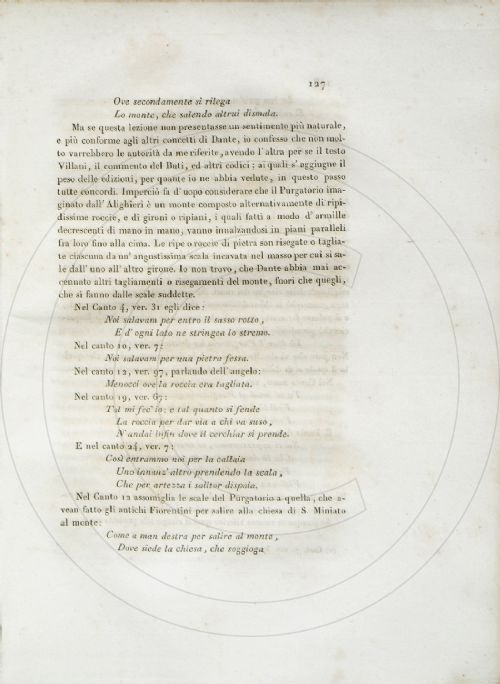 127
Ove secondamente si rilega
Lo monte, che salendo altrui dismala.
Ma se questa lezione non presentasse un sentimente più naturale,
e più conforme agli altri concetti di Dante, io confesso che non mol-
to varrebbero le autorità da me riferite, avendo l'altra per se il testo
Villani, il commento del Buti, ed altri codici; ai quali s'aggiugne il
peso delle edizioni, per quante io ne abbia vedute, in questo passo
tutte concordi. Imperciò fa d'uopo considerare che il Purgatorio ima-
ginato dall'Alighieri è un monte composto alternativamente di ripi-
dissime roccie, e di gironi o ripiani, i quali fatti a modo d'armille
decrescenti di mano in mano, vanno innalzandosi in piani paralleli
fra loro fino alla cima. Le ripe o roccie di pietra son risegate o taglia-
te ciascuna da un'angustissima scala incavata nel masso per cui si sa-
le dall'uno all'altro girone. Io non trovo, che Dante abbia mai ac-
cennato altri tagliamenti o risegamenti del monte, fuori che quegli,
che si fanno dalle scale suddette.
Nel Canto 4, ver. 31 egli dice:
Noi salavam per entro il sasso rotto,
E d'ogni lato ne stringea lo stremo.
Nel canto 10, ver. 7:
Noi salavam per una pietra fessa.
Nel canto 12, ver. 97, parlando dell'angelo:
Menocci ove la roccia era tagliata.
Nel canto 19, ver. 67:
Tal mi fec'io: e tal quanto si fende
La roccia per dar via a chi va suso,
N'andai infin dove il cerchiar si prende.
E nel canto 24, ver. 7:
Così entrammo noi per la callaia
Uno innanz'altro prendendo la scala,
Che per artezza i salitor dispaia.
Nel Canto 12 assomiglia le scale del Purgatorio a quella, che a-
vean fatto gli antichi Fiorentini per salire alla chiesa di S. Miniato
al monte:
Come a man destra per salire al monte,
Dove siede la chiesa, che soggioga